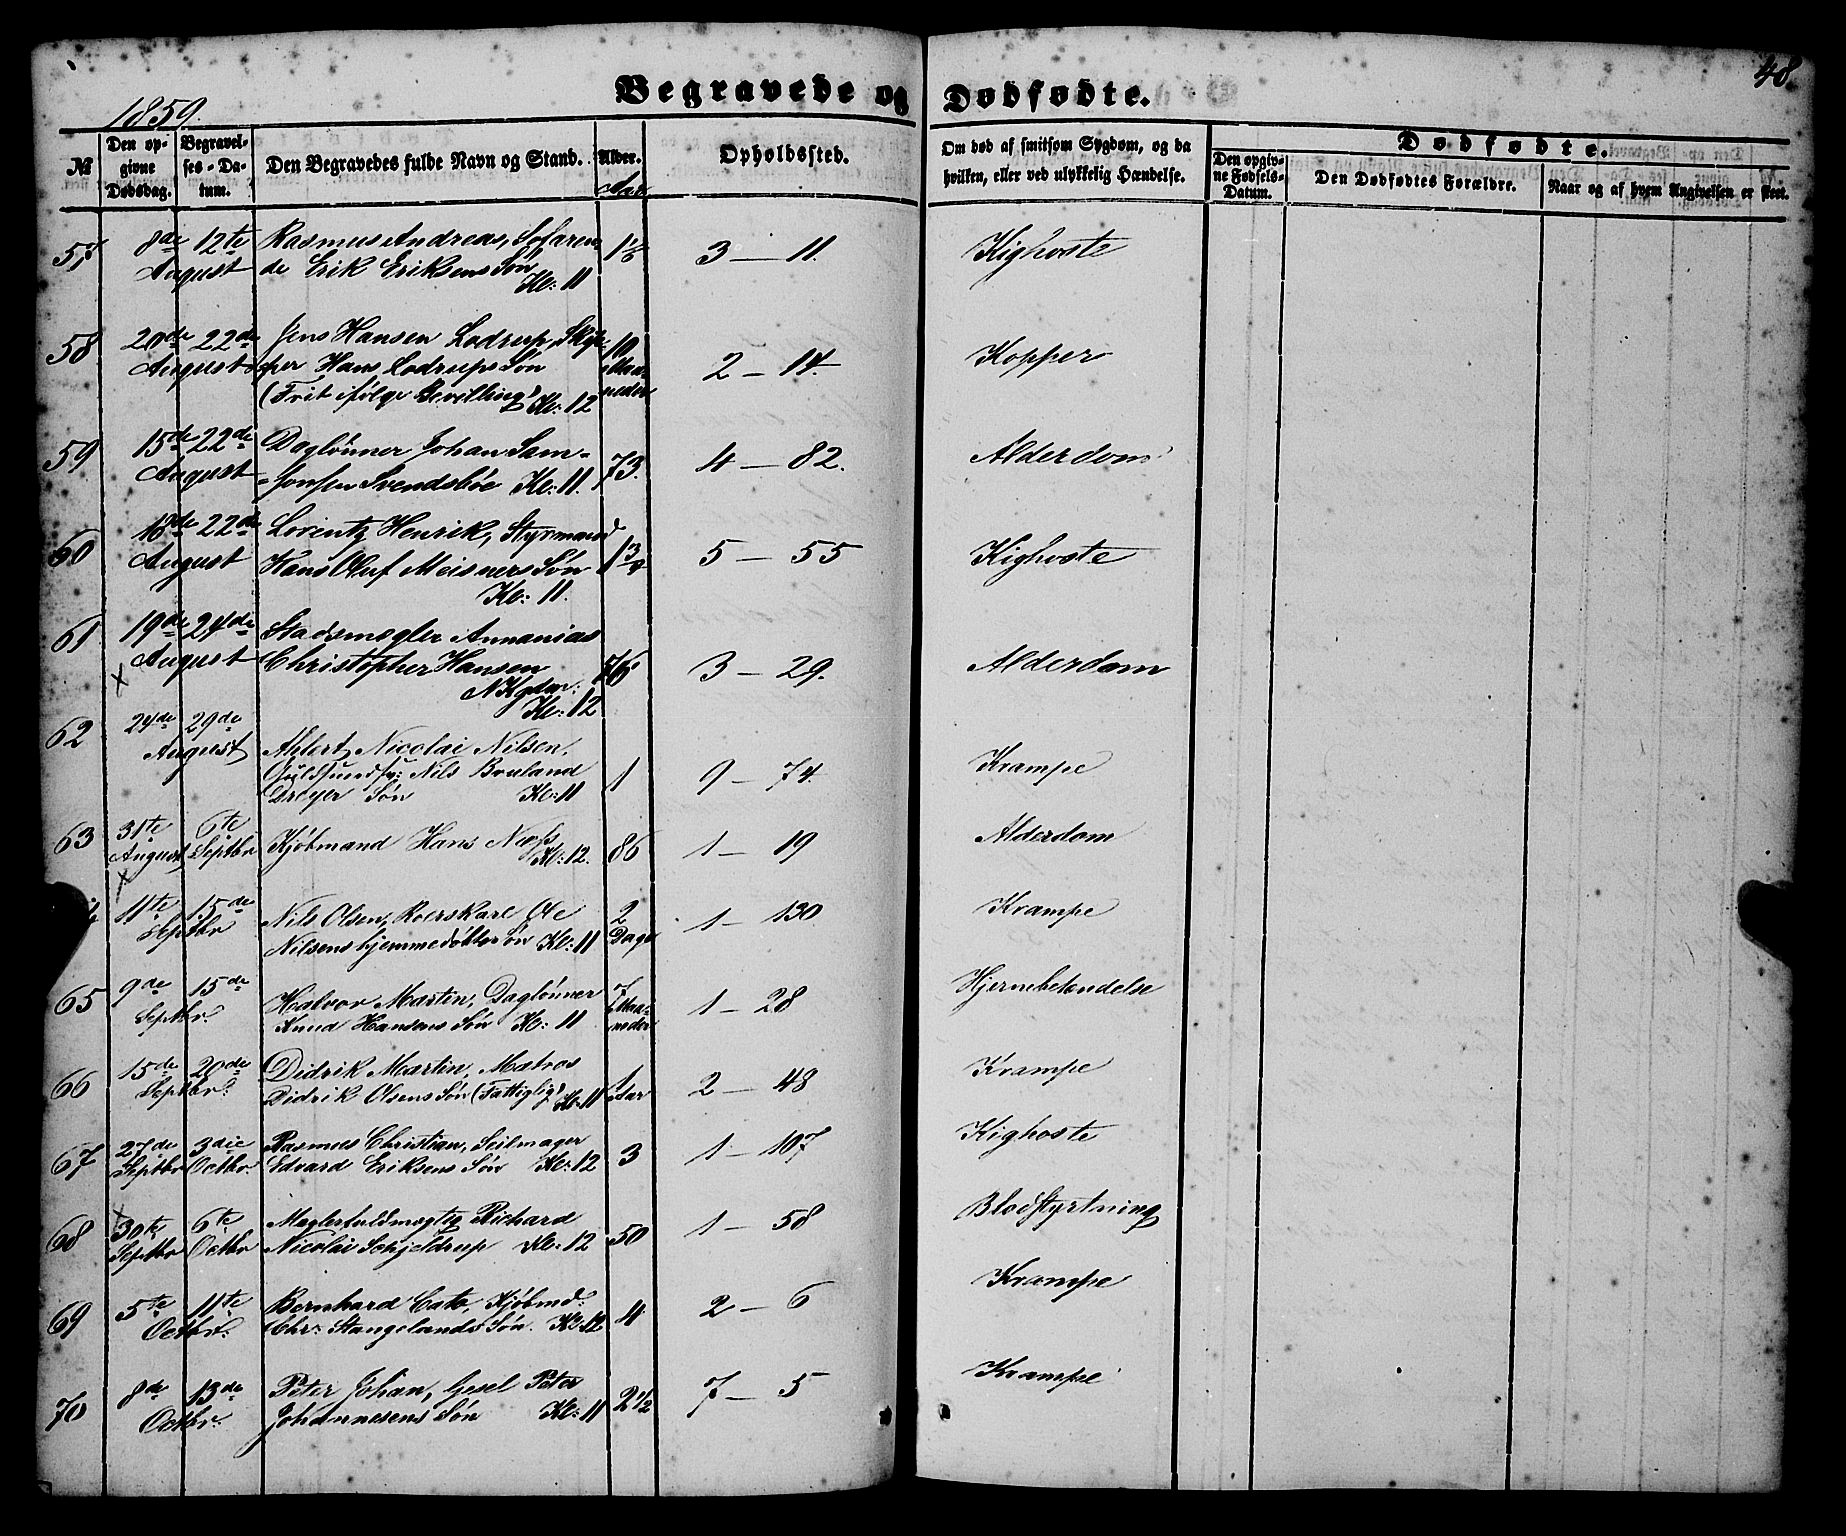 48.
1859.
Begravede og Dødfødte.
№
Den opgivne Dødsdag.
Begravelses-Datum.
Den Begravedes fulde Navn og Stand.
Alder.
Aar
Opholdssted.
Om død af smitsom Sygdom, og da hvilken, eller ved ulykkelig Hændelse.
Dødfødte.
Den opgivne Fødsels-Datum.
Den Dødfødtes Forældre.
Naar og af hvem Angivelsen er skeet.
57 8de 12te Rasmus Andreas, Sofaren- 1½ 3 — 11. Kighoste
August de Erik Eriksens Søn
Kl: 11
58 20de 22de Jens Hansen Lodrup, Skip- 10 2 — 14. Kopper
August per Hans Lodrups Søn Maa-
(Frit ifølge Bevilling) Kl: 12 neder
59 15de 22de Daglønner Johan Sam- 73. 4 — 82. Alderdom
August =sonsen Svendsbøe Kl: 11.
60 18de 22de Lorentz Henrik, Styrmand 1¾ 5 — 55 Kighoste
August Hans Oluf Meisners Søn
Kl: 11.
61 19de 24de Stadsmægler Annanias 76 3 — 29. Alderdom
× August Christopher Hansen
Kl: 12
62 24de 29de
August Ahlert Nicolai Nilsen,
Nils Bruland 1 9 — 74. Krampe
Dreyer Søn Kl: 11
63 31te 6te Kjøbmand Hans Næss 86 1 — 19 Alderdom
August Septbr Kl: 12.
×
11te 15de Nils Olsen, Roerskarl Ole 2 1 — 130 Krampe
Septbr Nilsens hjemmedøbte Søn Kl: 11 Dage
65 9de 15de Halvor Martin, Daglønner 7 1 — 28 Hjernebetændelse
Septbr. Knud Hansens Søn Kl: 11 Maa-
neder
66 15de 20de Didrik Martin, Matros 1 2 — 48 Krampe
Septbr. Didrik Olsens Søn (Fattiglig) Kl: 11 Aar
67 27de 3die Rasmus Christian, Seilmager 3 1 — 107 Kighoste
Septbr Octbr. Edvard Eriksens Søn Kl: 12
×
68 30te 6te Mæglerfuldmægtig Richard 50 1 — 58 Blodstyrtning
Septbr Octbr Nicolai Schjeldrup Kl: 12
69 5te 11te Bernhard Cato, Kjøbmd: 4 2 — 6 Krampe
Octbr. Chr: Stangelands Søn. Kl: 12
70 8de 13de Peter Johan, Gesel Peter 2½ 7 — 5 Krampe
Octbr. Johannesens Søn Kl: 11